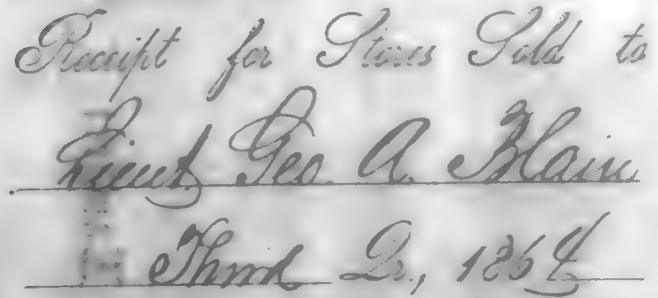 Receipt for Stores Sold to
Lieut Geo. A. Blain
Third Qr., 1864